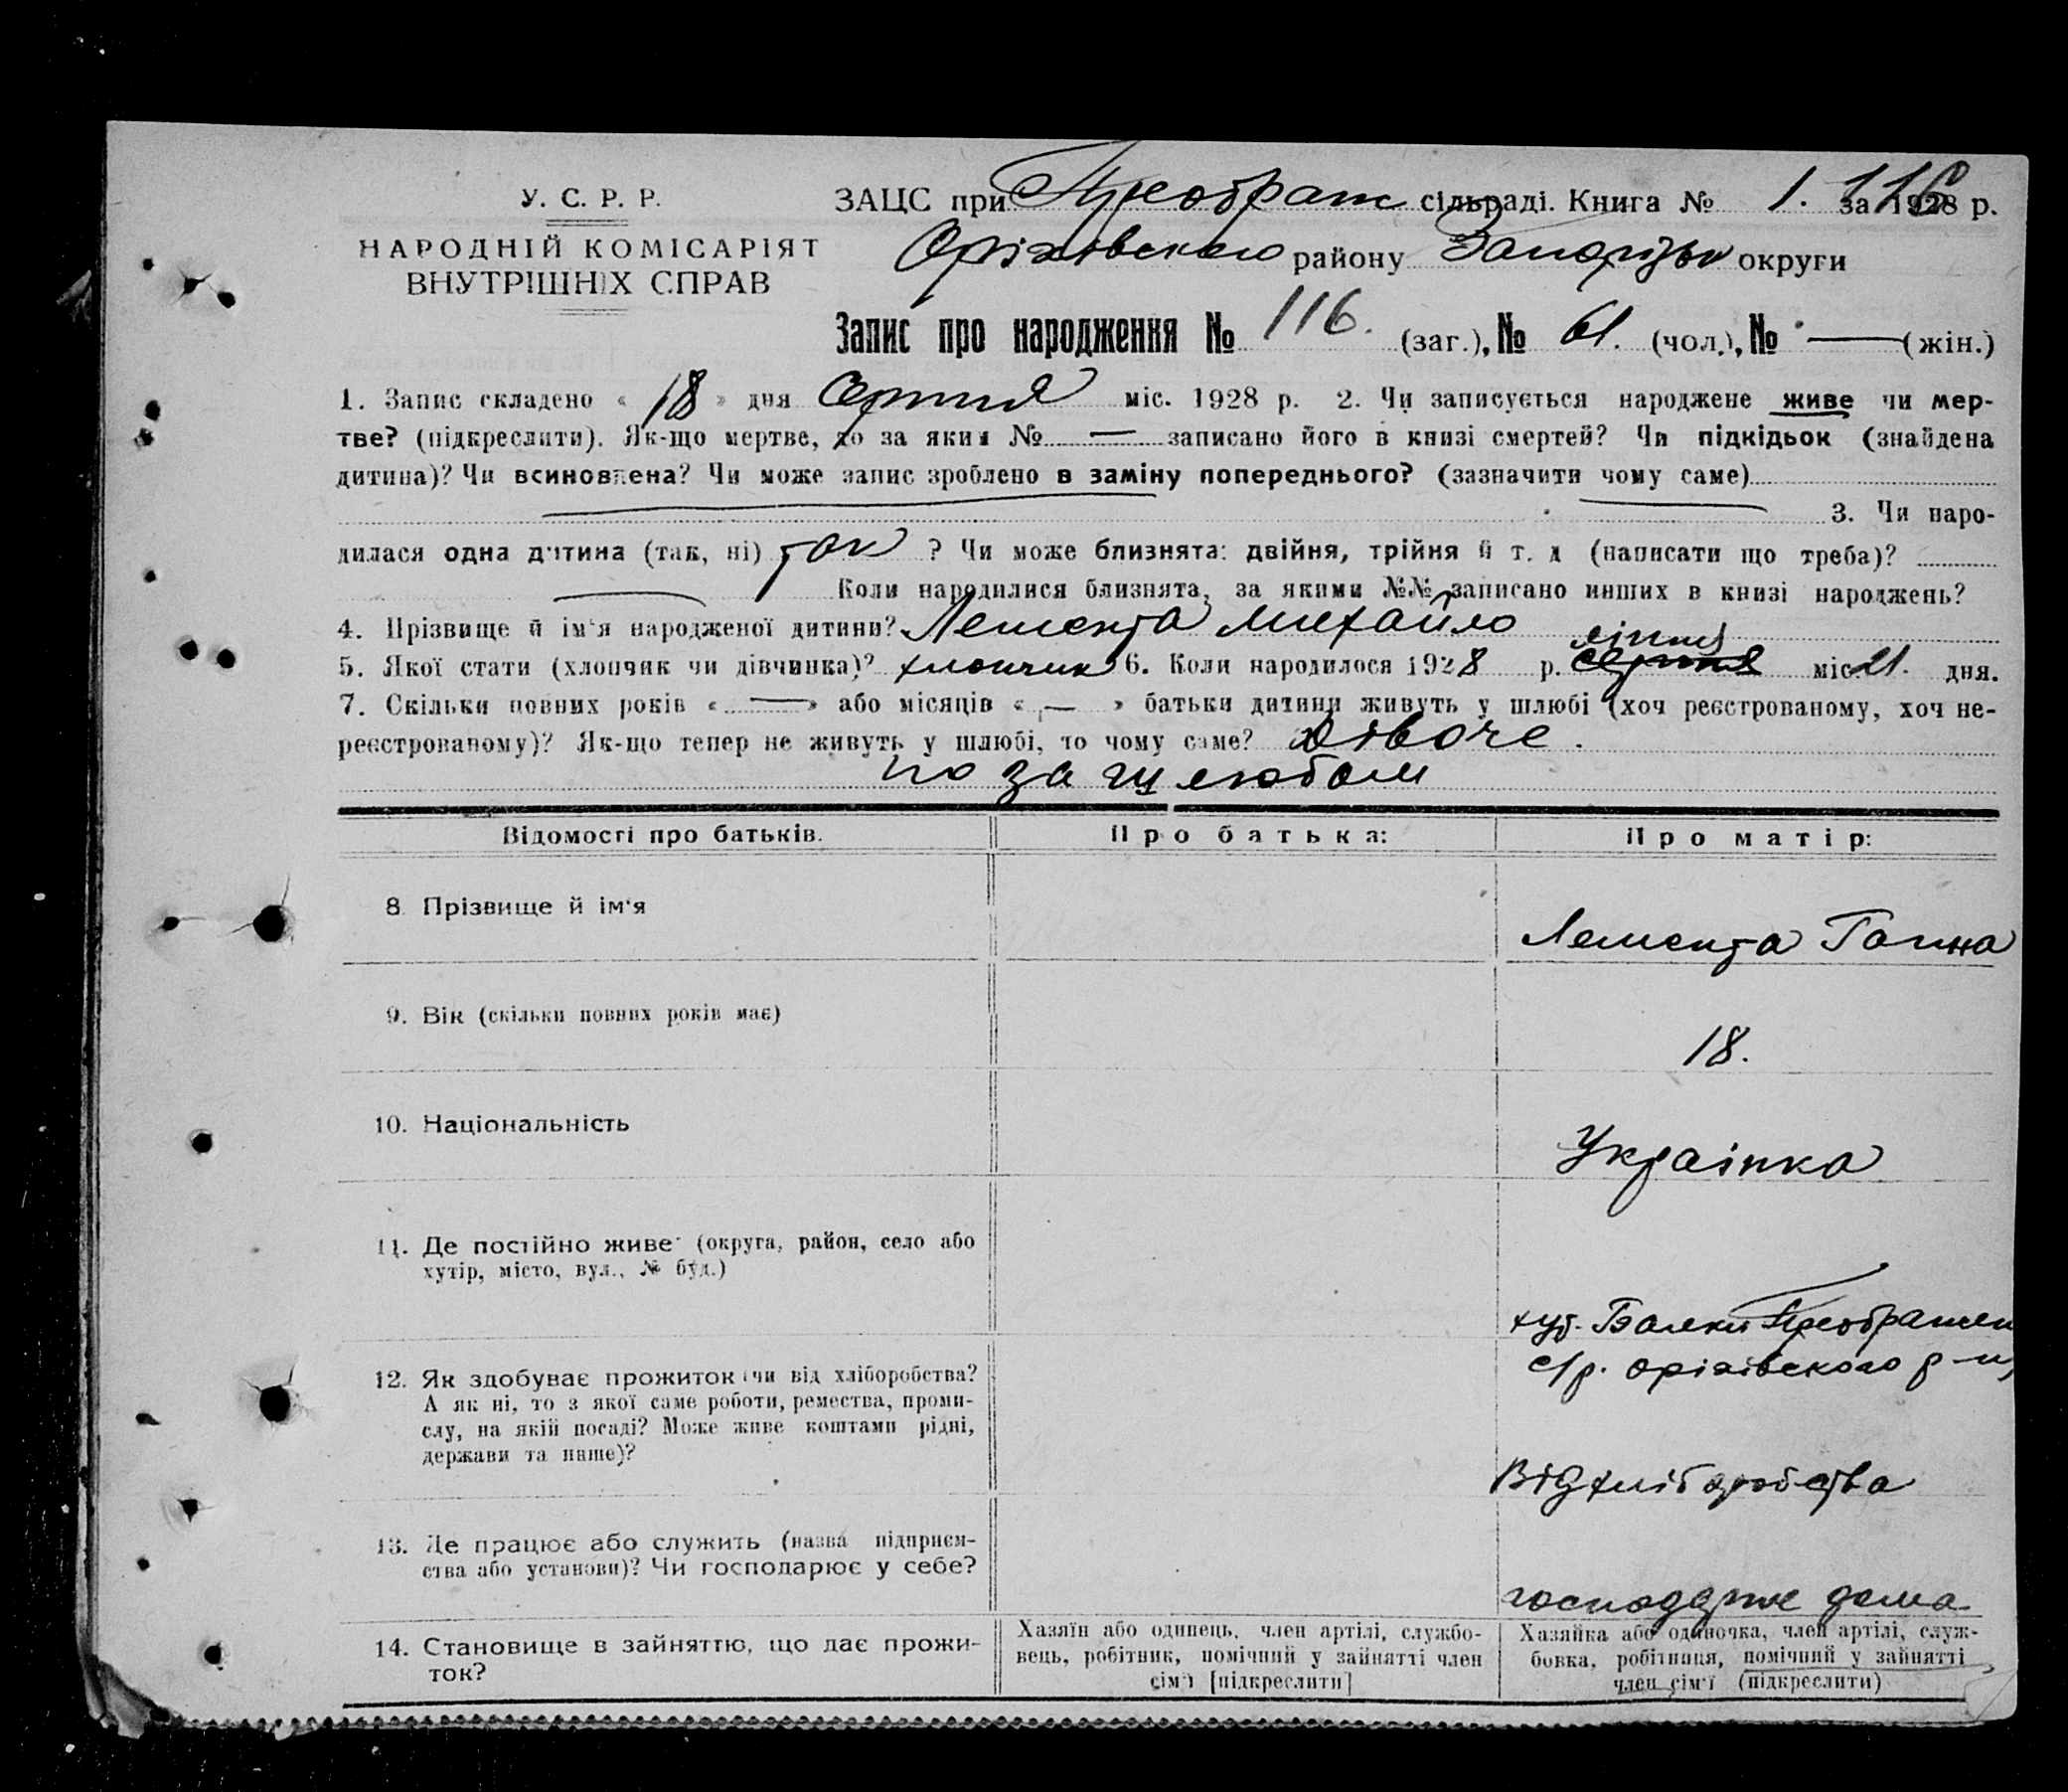 У. С. Р. Р.
НАРОДНІЙ КОМІСАРІЯТ
ВНУТРІШНІХ СПРАВ
ЗАЦС при Преображ сільраді. Книга № 1. за 1928 р. 116
Оріхівського району Запорізьк округи
Запис про народження № 116. (заг.), № 61. (чол.), № — (жін.)
1. Запис складено « 18 » дня Серпня міс. 1928 р. 2. Чи записується народжене живе чи мер-
тве? (підкреслити). Як-що мертве, то за яким № — записано його в книзі смертей? Чи підкідьок (знайдена
дитина)? Чи всиновлена? Чи може запис зроблено в заміну попереднього? (зазначити чому саме)
3. Чи наро-
дилася одна дитина (так, ні) так ? Чи може близнята: двійня, трійня й т. д (написати що треба)?
Коли народилися близнята, за якими №№ записано инших в книзі народжень?
4. Прізвище й ім'я народженої дитини? Лемента Михайло
ліпня
5. Якої стати (хлопчик чи дівчинка)? хлопчик 6. Коли народилося 1928 р. серпня міс. 21. дня.
7. Скільки повних років « — » або місяців « — » батьки дитини живуть у шлюбі (хоч реєстрованому, хоч не-
реєстрованому)? Як-що тепер не живуть у шлюбі, то чому саме? дівоче.
по за шлюбом
Відомості про батьків. Про батька: Про матір:
8. Прізвище й ім'я
Лемента Ганна
9. Вік (скільки повних років має)
18.
10. Національність
Украінка
11. Де постійно живе (округа, район, село або
хутір, місто, вул., № буд.)
хут. Балки Преображен
с/р. Оріхівського р-ну
12. Як здобуває прожиток (чи від хліборобства?
А як ні, то з якої саме роботи, ремества, проми-
слу, на якій посаді? Може живе коштами рідні,
держави та инше)?
Від хліборобства
13. Де працює або служить (назва підприєм-
ства або установи)? Чи господарює у себе?
господарює дома
14. Становище в зайняттю, що дає прожи-
ток?
Хазяїн або одинець, член артілі, службо-
вець, робітник, помічний у зайнятті член
сім'ї [підкреслити]
Хазяйка або одиночка, член артілі, служ-
бовка, робітниця, помічний у зайнятті
член сім'ї (підкреслити)